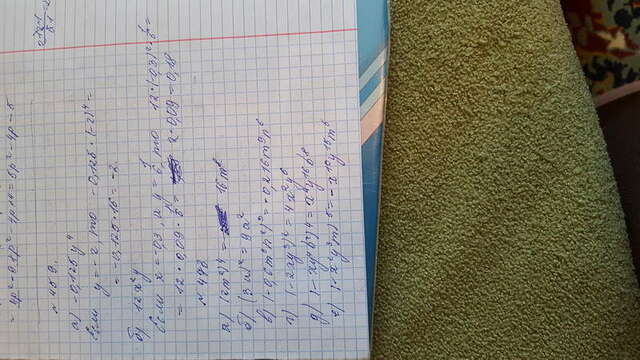 = 4p² - 9 + p² - 4p + 4 = 5p² - 4p - 5
№ 459.
а) -0,125y⁴
Если y = -2, то -0,125 · (-2)⁴ =
= -0,125 · 16 = -2.
б) 12x²y
Если x = -0,3, а y = 1/6, то 12 · (-0,3)² · 1/6 =
= 12 · 0,09 · 1/6 = 2 · 0,09 = 0,18
№ 478
а) (2m²)⁴ = 16m⁸
б) (3a)² = 9a²
в) (-0,6m³n²)³ = -0,216m⁹n⁶
г) (-2xy³)² = 4x²y⁶
д) (-xy⁴b²)⁴ = x⁴y¹⁶b⁸
е) (-x²y³m)⁵ = -x¹⁰y¹⁵m⁵